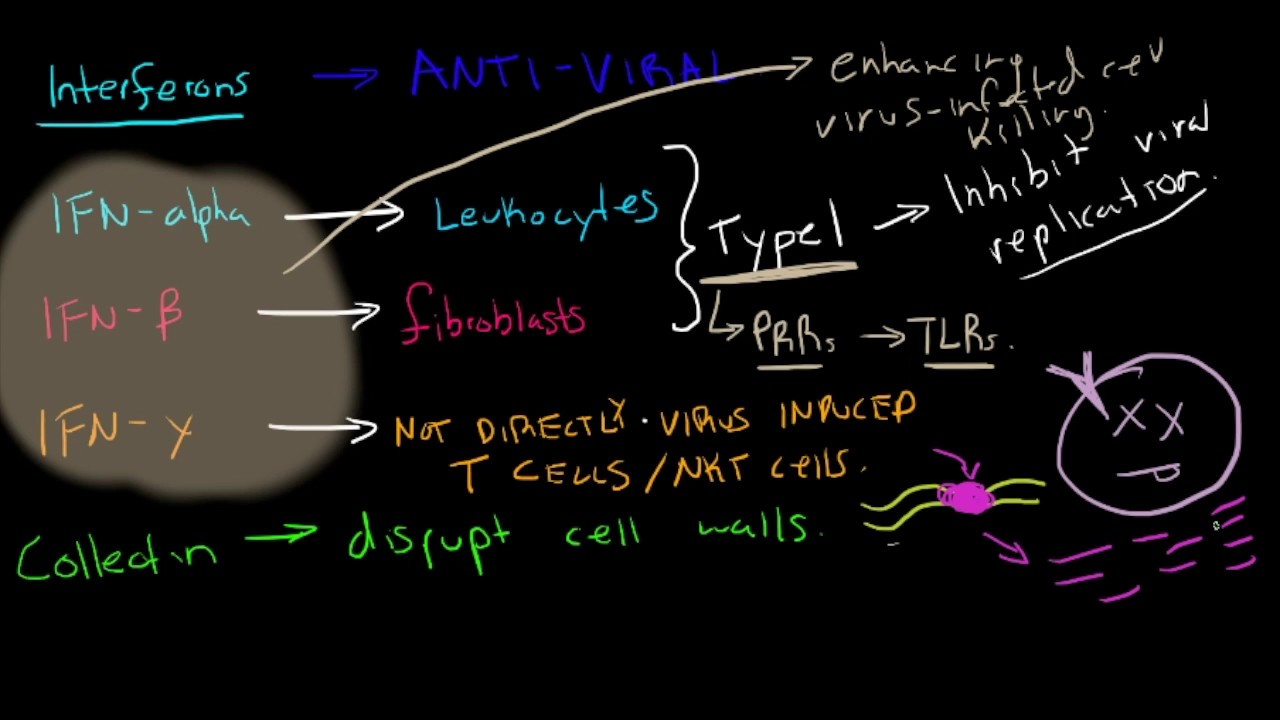 Interferons → ANTI-VIRAL → enhancing
virus-infected cell
killing.
IFN-alpha → Leukocytes
Type 1 → Inhibit viral
replication.
IFN-β → fibroblasts
PRRs → TLRs.
IFN-γ → NOT DIRECTLY · VIRUS INDUCED
T CELLS / NKT cells.
Collectin → disrupt cell walls.
X X